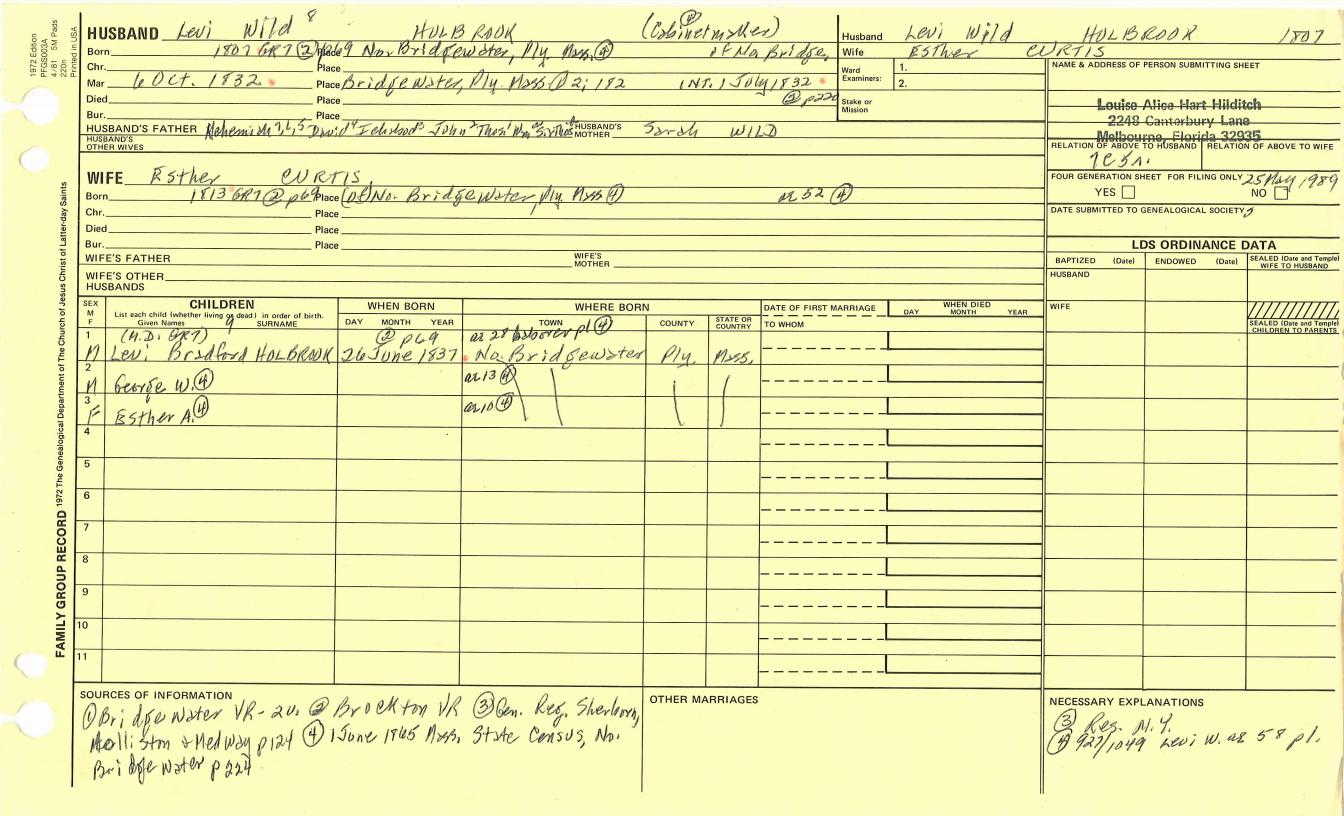 1972 Edition
PFGS003A
4/81 5M Pads
220n
Printed in USA
FAMILY GROUP RECORD 1972 The Genealogical Department of The Church of Jesus Christ of Latter-day Saints
HUSBAND Levi Wild 8 HOLBROOK (Cabinetmaker) ④
Born 1807 GR7 ② p69 Place No. Bridgewater, Ply. Mass. ④ of No. Bridge,
Chr. Place
Mar 6 Oct. 1832 Place Bridgewater, Ply. Mass ① 2; 182 INT. 1 July 1832
Died Place ② p220
Bur. Place
HUSBAND'S FATHER David⁴ Ichabod³ John² HUSBAND'S MOTHER Sarah WILD
HUSBAND'S OTHER WIVES
WIFE Esther CURTIS
Born 1813 GR7 ② p69 Place (of) No. Bridgewater, Ply. Mass ④ ae 52 ④
Chr. Place
Died Place
Bur. Place
WIFE'S FATHER WIFE'S MOTHER
WIFE'S OTHER HUSBANDS
Husband Levi Wild HOLBROOK 1807
Wife Esther CURTIS
Ward Examiners: 1.
2.
Stake or Mission
NAME & ADDRESS OF PERSON SUBMITTING SHEET
Louise Alice Hart Hilditch
2248 Canterbury Lane
Melbourne, Florida 32935
RELATION OF ABOVE TO HUSBAND RELATION OF ABOVE TO WIFE
FOUR GENERATION SHEET FOR FILING ONLY 25 May 1989
YES NO
DATE SUBMITTED TO GENEALOGICAL SOCIETY
LDS ORDINANCE DATA
BAPTIZED (Date) ENDOWED (Date) SEALED (Date and Temple) WIFE TO HUSBAND
HUSBAND
WIFE
SEALED (Date and Temple) CHILDREN TO PARENTS
SEX M F CHILDREN WHEN BORN WHERE BORN DATE OF FIRST MARRIAGE WHEN DIED
List each child (whether living or dead) in order of birth. DAY MONTH YEAR TOWN COUNTY STATE OR COUNTRY TO WHOM DAY MONTH YEAR
Given Names 9 SURNAME
1 (M.D. GR7) ② p69 ae 28 laborer pl ④
M Levi Bradford HOLBROOK 26 June 1837 No. Bridgewater Ply. Mass.
2 M George W. ④ ae 13 ④
3 F Esther A. ④ ae 10 ④
4
5
6
7
8
9
10
11
SOURCES OF INFORMATION
① Bridgewater VR-2v. ② Brockton VR ③ Gen. Reg. Sherborn,
Holliston & Medway p124 ④ 1 June 1865 Mass. State Census, No.
Bridgewater p224
OTHER MARRIAGES
NECESSARY EXPLANATIONS
③ Reg. N.Y.
④ 927/1049 Levi W. ae 58 pl.